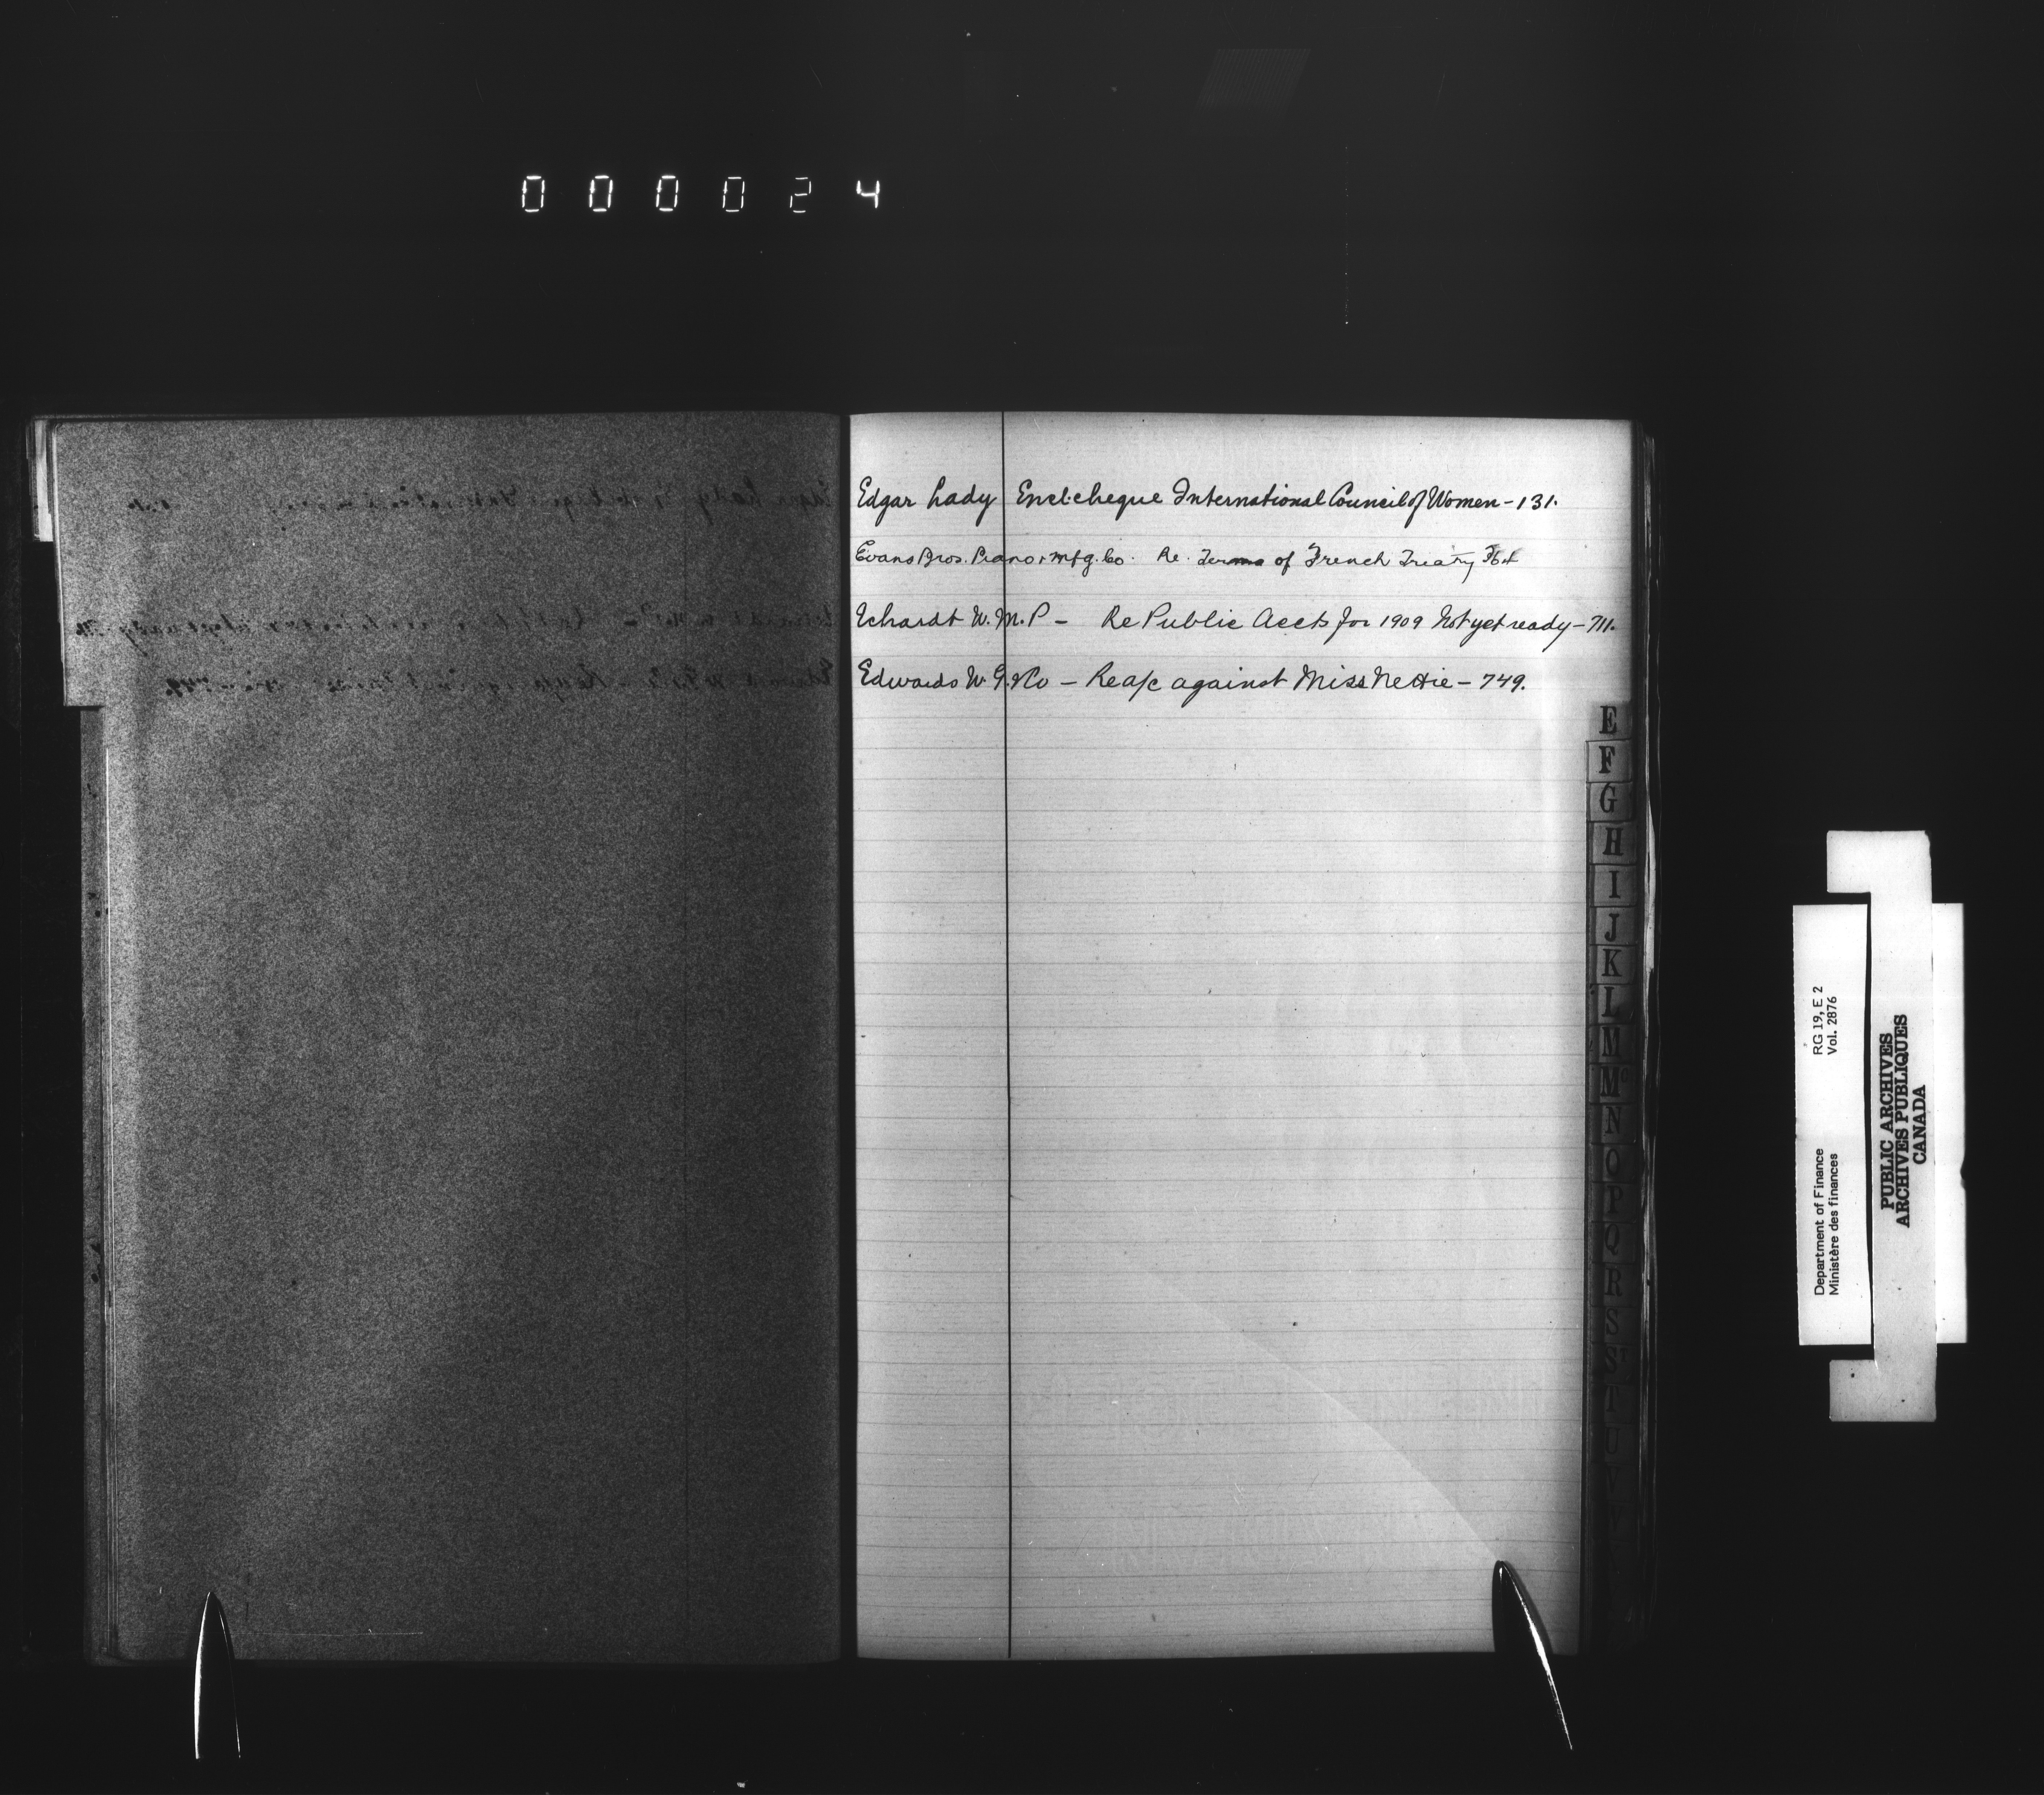 000024
Edgar Lady Encl. cheque International Council of Women - 131.
Evans Bros. Piano & Mfg. Co. Re. Terms of French Treaty
Echardt W. M. P - Re Public Accts for 1909 Not yet ready - 711.
Edwards W. & Co - Re a/c against Miss Nettie - 749.
E
F
G
H
I
J
K
L
M
Mc
N
O
P
Q
R
S
T
U
V
Department of Finance RG 19, E 2
Ministère des finances Vol. 2876
PUBLIC ARCHIVES
ARCHIVES PUBLIQUES
CANADA